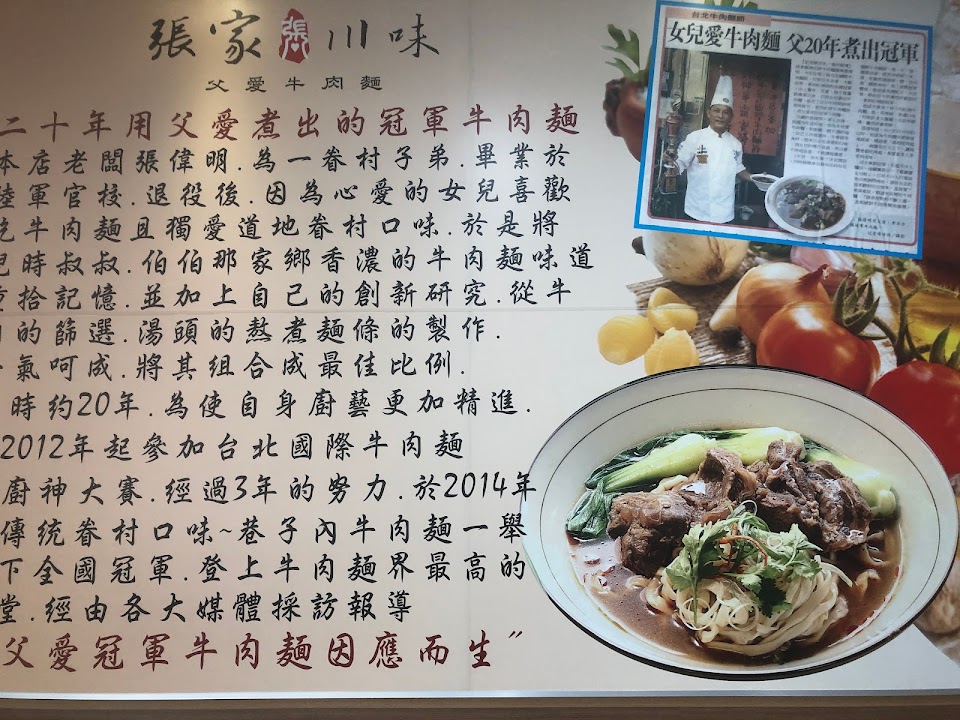 張家 張 川味
父愛牛肉麵
二十年用父愛煮出的冠軍牛肉麵
本店老闆張偉明.為一眷村子弟.畢業於
陸軍官校.退役後.因為心愛的女兒喜歡
吃牛肉麵且獨愛道地眷村口味.於是將
兒時叔叔.伯伯那家鄉香濃的牛肉麵味道
重拾記憶.並加上自己的創新研究.從牛
的篩選.湯頭的熬煮麵條的製作.
氣呵成.將其組合成最佳比例.
時約20年.為使自身廚藝更加精進.
2012年起參加台北國際牛肉麵
廚神大賽.經過3年的努力.於2014年
傳統眷村口味~巷子內牛肉麵一舉
下全國冠軍.登上牛肉麵界最高的
堂.經由各大媒體採訪報導
父愛冠軍牛肉麵因應而生"
台北牛肉麵節
女兒愛牛肉麵 父20年煮出冠軍